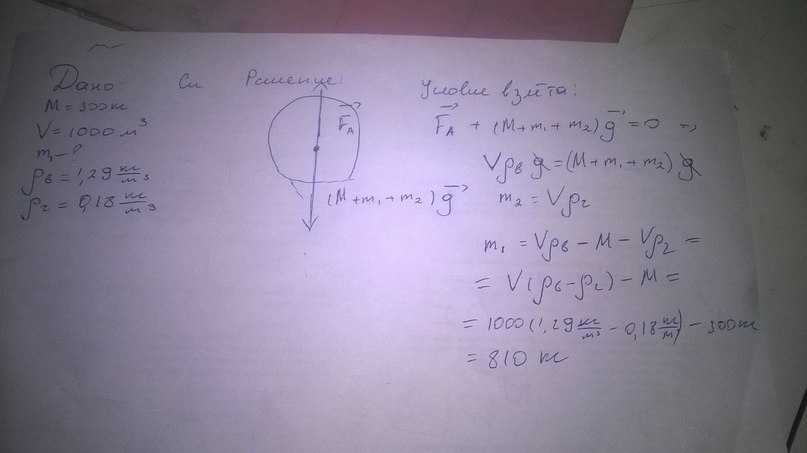 Дано: Си Решение:
M = 300 кг
V = 1000 м³
m₁ - ?
ρв = 1,29 кг/м³
ρг = 0,18 кг/м³
F⃗A
(M + m₁ + m₂) g⃗
Условие взлёта:
F⃗A + (M + m₁ + m₂) g⃗ = 0 =>
Vρв g = (M + m₁ + m₂) g
m₂ = Vρг
m₁ = Vρв - M - Vρг =
= V(ρв - ρг) - M =
= 1000 (1,29 кг/м³ - 0,18 кг/м³) - 300 кг
= 810 кг